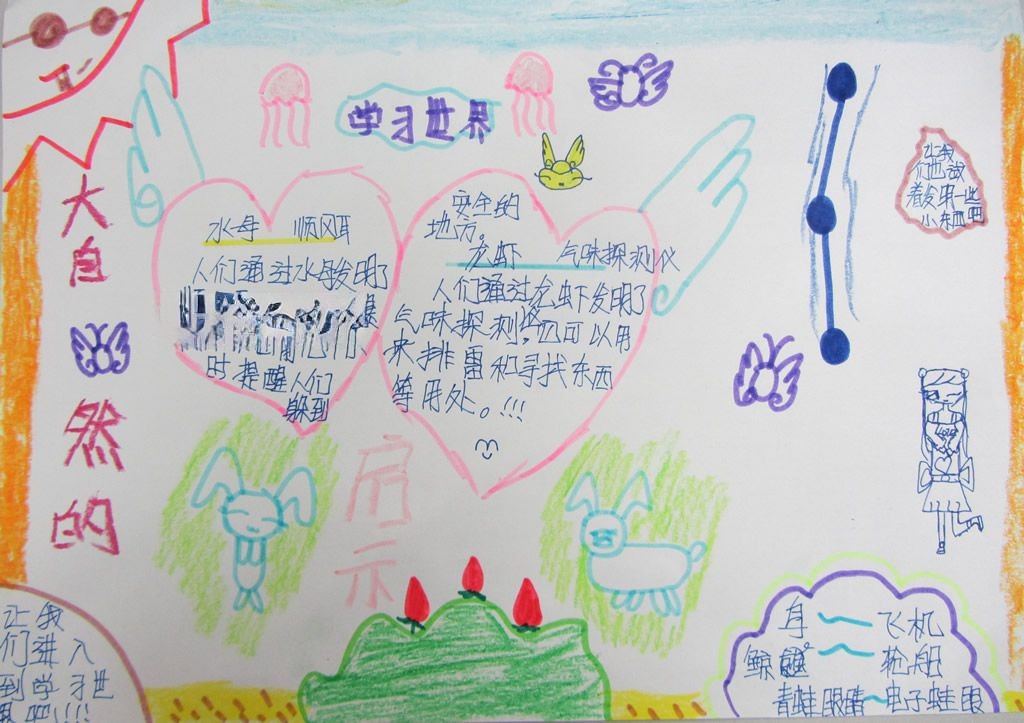 学习世界
大自然的
启示
水母 顺风耳
人们通过水母发明了
时提醒人们
躲到
安全的
地方。
龙虾 气味探测仪
人们通过龙虾发明了
气味探测仪,也可以用
来排雷和寻找东西
等用处。!!!
让我
们也试
着发明一些
小东西吧
让我
们进入
到学习世
界吧!!!!
鸟~飞机
鲸~轮船
青蛙眼睛~电子蛙眼